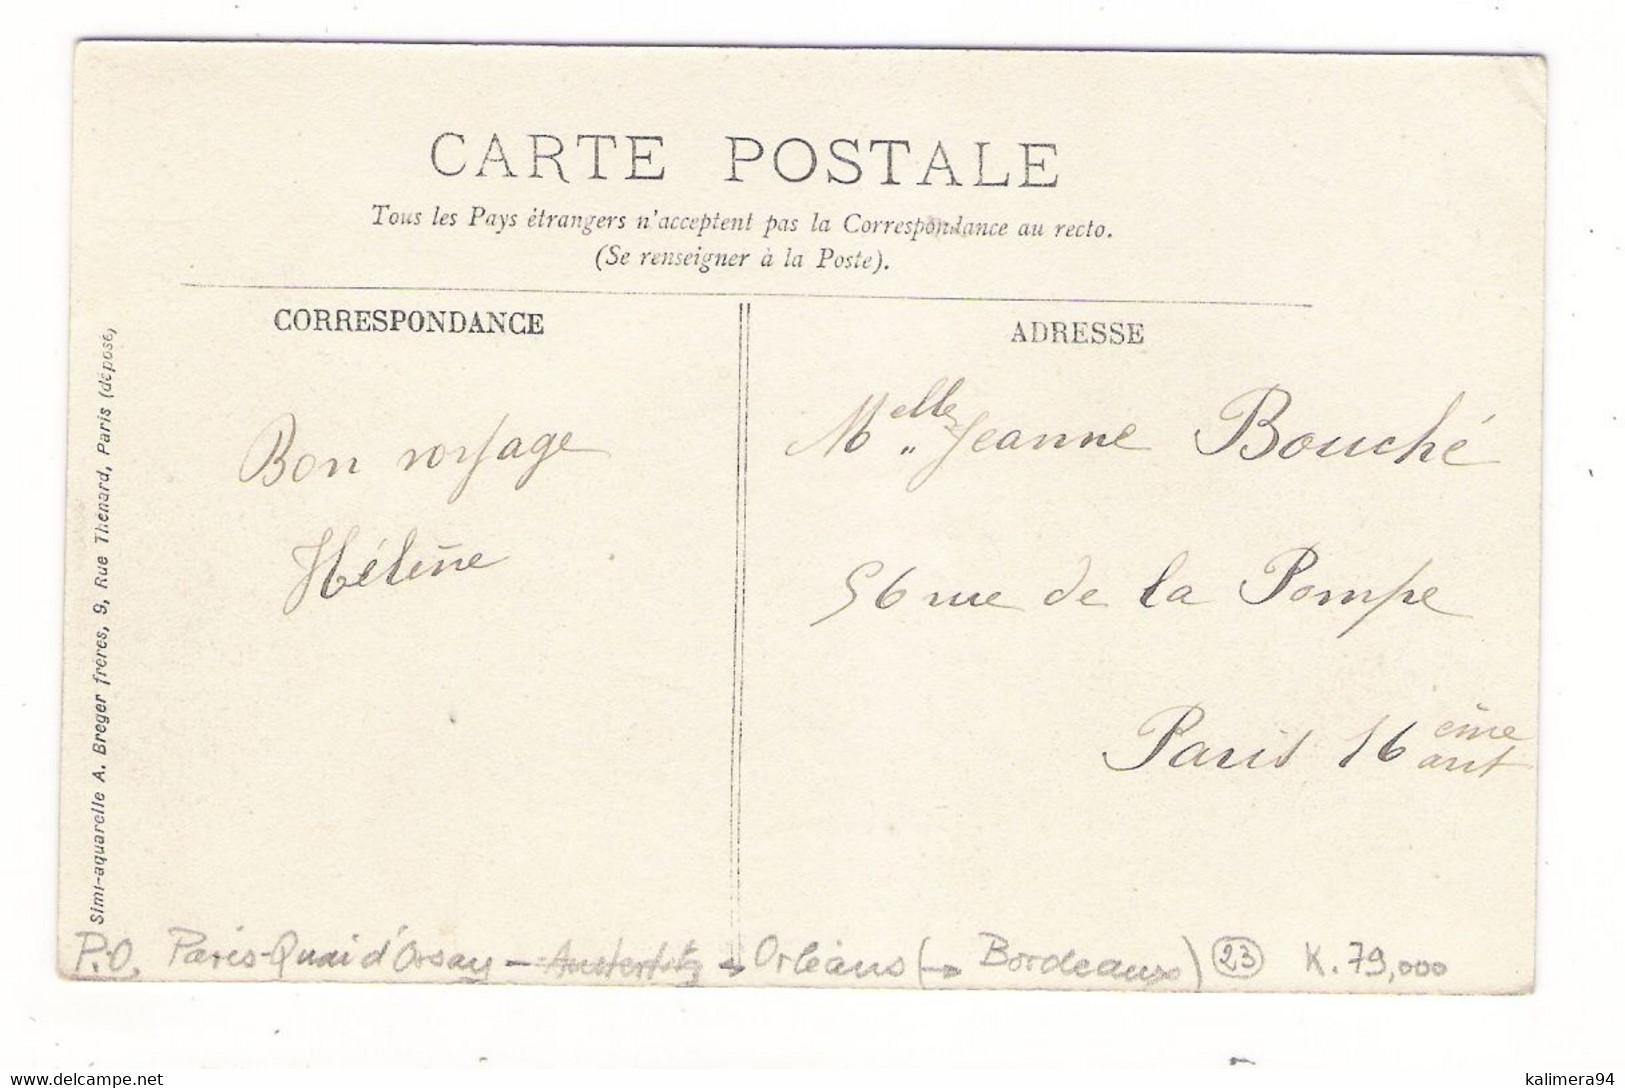 CARTE POSTALE
Tous les Pays étrangers n'acceptent pas la Correspondance au recto.
(Se renseigner à la Poste).
CORRESPONDANCE
Bon voyage
Hélène
ADRESSE
Melle Jeanne Bouché
56 rue de la Pompe
Paris 16 ème
arrt
Simi-aquarelle A. Breger frères, 9, Rue Thénard, Paris (déposé)
P.O. Paris-Quai d'Orsay - Austerlitz → Orléans (→ Bordeaux) 23 K. 79,000
kalimera94